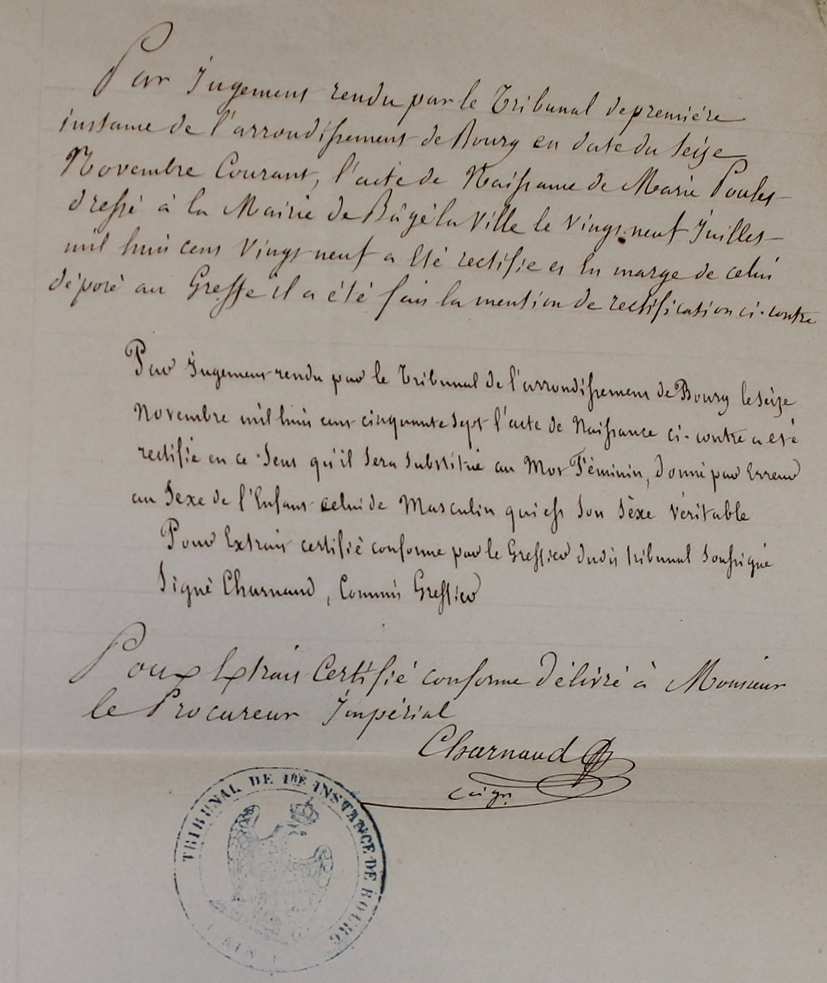 Par Jugement rendu par le Tribunal de première
instance de l'arrondissement de Bourg en date du Seize
Novembre Courant, l'acte de Naissance de Marie Poulet
dressé à la Mairie de Bâgé la Ville le Vingt neuf Juillet
mil huit cent Vingt neuf a été rectifié et En marge de celui
déposé au Greffe il a été fait la mention de rectification ci-contre
Par Jugement rendu par le Tribunal de l'arrondissement de Bourg le seize
Novembre mil huit cent cinquante sept l'acte de Naissance ci-contre a été
rectifié en ce Sens qu'il sera substitué au Mot Féminin, donné par Erreur
au Sexe de l'Enfant celui de Masculin qui est Son Sèxe véritable
Pour Extrait certifié conforme par le Greffier dudit tribunal Soussigné
Signé Charnaud, Commis Greffier
Pour Extrait Certifié conforme Délivré à Monsieur
le Procureur Impérial
Charnaud
TRIBUNAL DE 1RE INSTANCE DE BOURG